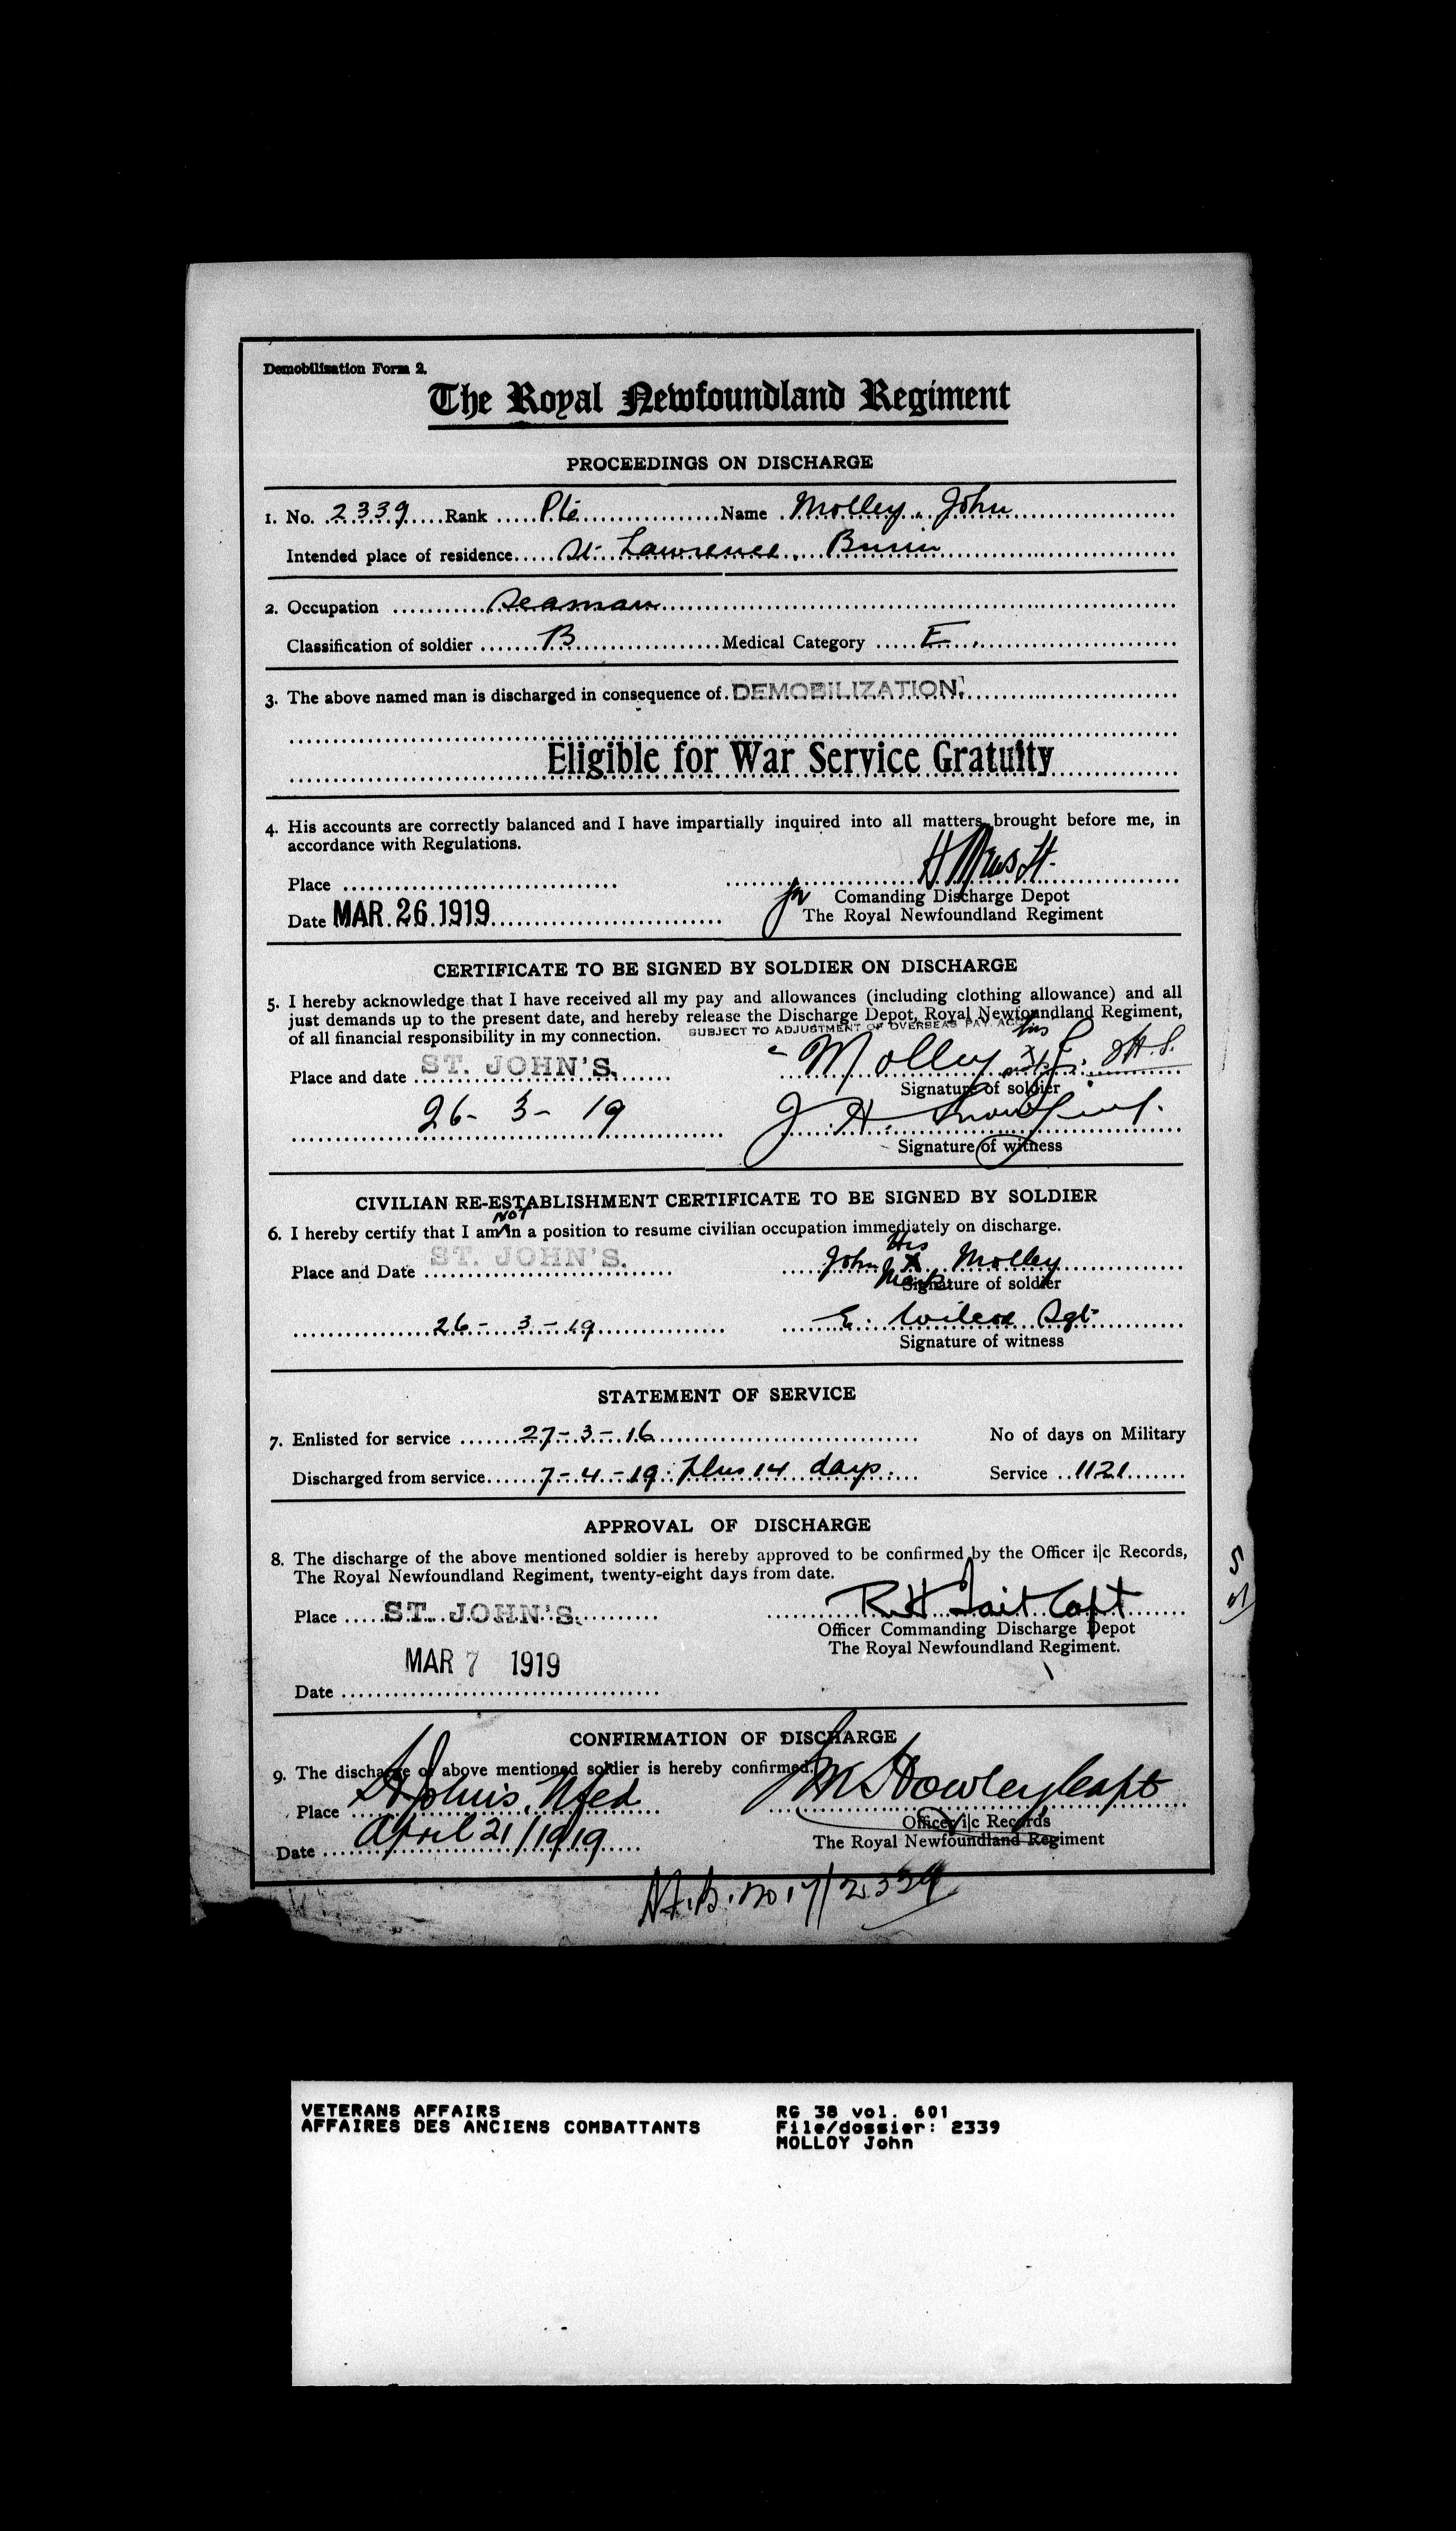 Demobilization Form 2.
The Royal Newfoundland Regiment
PROCEEDINGS ON DISCHARGE
1. No. 2339 Rank Pte Name Molley, John
Intended place of residence St. Lawrence, Burin
2. Occupation Seaman
Classification of soldier B Medical Category E
3. The above named man is discharged in consequence of DEMOBILIZATION.
Eligible for War Service Gratuity
4. His accounts are correctly balanced and I have impartially inquired into all matters brought before me, in
accordance with Regulations.
Place
for Comanding Discharge Depot
Date MAR. 26. 1919 The Royal Newfoundland Regiment
CERTIFICATE TO BE SIGNED BY SOLDIER ON DISCHARGE
5. I hereby acknowledge that I have received all my pay and allowances (including clothing allowance) and all
just demands up to the present date, and hereby release the Discharge Depot, Royal Newfoundland Regiment,
of all financial responsibility in my connection. SUBJECT TO ADJUSTMENT OF OVERSEAS PAY
his
Place and date ST. JOHN'S. Molley x J.
Signature of soldier
26 - 3 - 19 J. H.
Signature of witness
CIVILIAN RE-ESTABLISHMENT CERTIFICATE TO BE SIGNED BY SOLDIER
NOT
6. I hereby certify that I am in a position to resume civilian occupation immediately on discharge.
His
Place and Date ST. JOHN'S. John X Molley
Mark
Signature of soldier
26 - 3 - 19 E. Wilcox Sgt
Signature of witness
STATEMENT OF SERVICE
7. Enlisted for service 27-3-16 No of days on Military
Discharged from service 7-4-19 plus 14 days. Service 1121
APPROVAL OF DISCHARGE
8. The discharge of the above mentioned soldier is hereby approved to be confirmed by the Officer i|c Records,
The Royal Newfoundland Regiment, twenty-eight days from date.
Place ST. JOHN'S. R H Tait Capt
Officer Commanding Discharge Depot
The Royal Newfoundland Regiment.
MAR 7 1919
Date
CONFIRMATION OF DISCHARGE
9. The discharge of above mentioned soldier is hereby confirmed.
Place St John's, Nfld Howley Capt
Officer i|c Records
Date April 21/1919 The Royal Newfoundland Regiment
2339
VETERANS AFFAIRS
AFFAIRES DES ANCIENS COMBATTANTS
RG 38 vol. 601
File/dossier: 2339
MOLLOY John